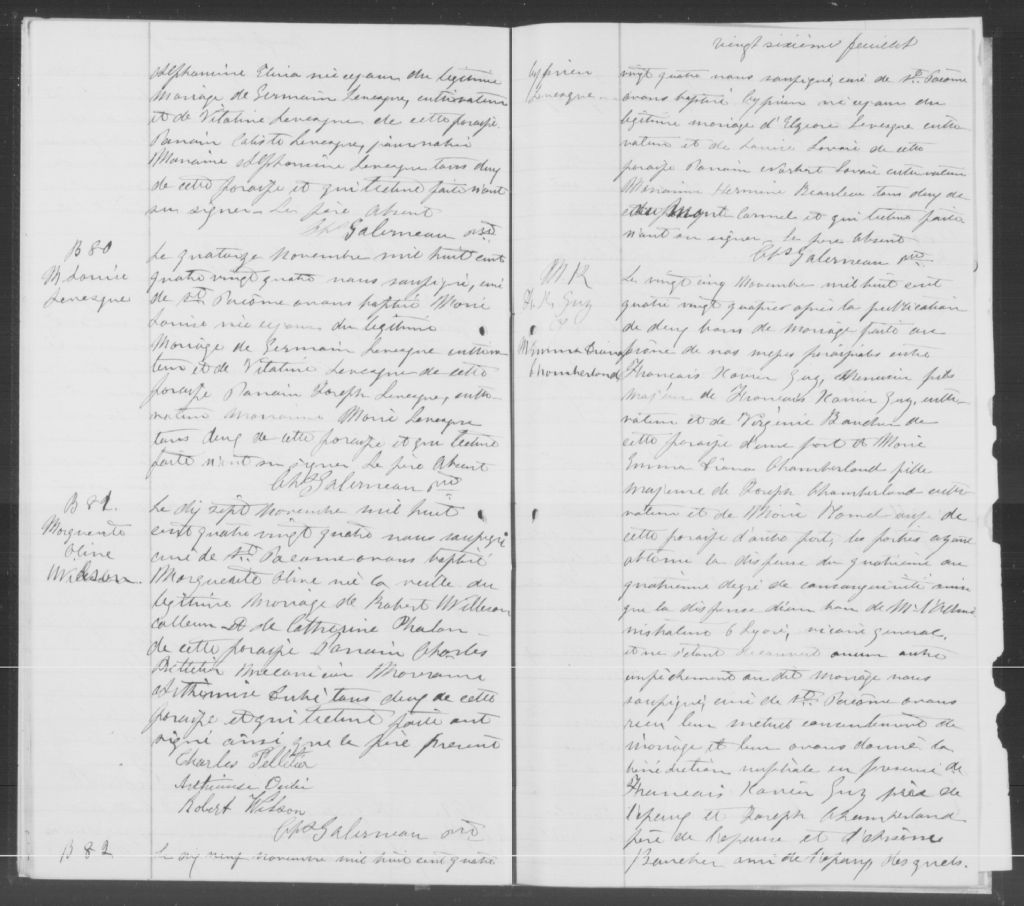 Alphonsine Elina née ce jour du légitime
Mariage de Germain Levesque, cultivateur
et de Vitaline Levesque de cette paroisse
Parrain Calixte Levesque, journalier
Marraine Alphonsine Levesque tous deux
de cette paroisse et qui lecture faite n'ont
su signer. Le père absent
Chs Galerneau ptre
B 80
M. Louise
Levesque
Le quatorze Novembre mil huit cent
quatre vingt quatre nous soussigné, curé
de St. Pacôme avons baptisé Marie
Louise née ce jour du légitime
Mariage de Germain Levesque cultiva-
teur et de Vitaline Levesque de cette
paroisse Parrain Joseph Levesque, culti-
vateur Marraine Marie Levesque
tous deux de cette paroisse et qui lecture
faite n'ont su signer. Le père Absent
Chs Galerneau ptre
B 81.
Marguerite
Oline
Wilson
Le dix sept Novembre mil huit
cent quatre vingt quatre nous soussigné
curé de St. Pacome avons baptisé
Marguerite Oline né la veille du
légitime Mariage de Robert Willson
culleur et de Catherine Phalon
de cette paroisse Parrain Charles
Pelletier Mecanicien Marraine
Arthemise tous deux de cette
paroisse et qui lecture faite ont
signé ainsi que le père present
Charles Pelletier
Robert Wilson
Chs Galerneau ptre
B 82
Le dix neuf novembre mil huit cent quatre
vingt sixième feuillet
Cyprien
Levesque
vingt quatre nous soussigné, curé de St. Pacôme
avons baptisé Cyprien né ce jour du
légitime mariage d'Elzéore Levesque culti-
vateur et de Louise Lavoie de cette
paroisse Parrain Norbert Lavoie cultivateur
Marraine Hermine Beaulieu tous deux de
du Mont Carmel et qui lecture faite
n'ont su signer. Le père Absent
Chs Galerneau ptre
M 12
F. X. Guy
&
M. Emma Diana
Chamberland
Le vingt cinq Novembre mil huit cent
quatre vingt quatre après la publication
de deux bans de Mariage faite au
prône de nos messes paroissiales entre
Francois Xavier Guy, Menuisier fils
majeur de Francois Xavier Guy, culti-
vateur et de Virginie Boucher de
cette paroisse d'une part et Marie
Emma Diana Chamberland fille
majeure de Joseph Chamberland culti-
vateur et de Marie aussi de
cette paroisse d'autre part; les parties ayant
obtenu la dispense du quatrième au
quatrième degré de consanguinité ainsi
que la dispense d'un ban de Mr l'Admi-
nistrateur vicaire general,
et ne s'étant découvert aucun autre
empêchement au dit Mariage nous
soussigné, curé de St. Pacôme avons
reçu leur mutuel consentement de
mariage et leur avons donné la
bénédiction nuptiale en presence de
Francois Xavier Guy père de
l'époux et Joseph Chamberland
père de l'épouse et d'Onésime
Boucher ami de l'époux lesquels.